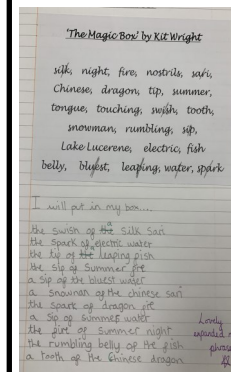 'The Magic Box' by Kit Wright
silk, night, fire, nostrils, sari,
Chinese, dragon, tip, summer,
tongue, touching, swish, tooth,
snowman, rumbling, sip,
Lake Lucerene, electric, fish
belly, bluest, leaping, water, spark
I will put in my box....
a
the swish of the silk sari
the spark of electric water
the tip of the leaping fish
the sip of summer fire
a sip of the bluest water
a snowman of the chinese sari
the spark of dragon fire
a sip of summer water
the fire of summer night
the rumbling belly of the fish
a tooth of the Chinese dragon
Lovely
expanded
phrases